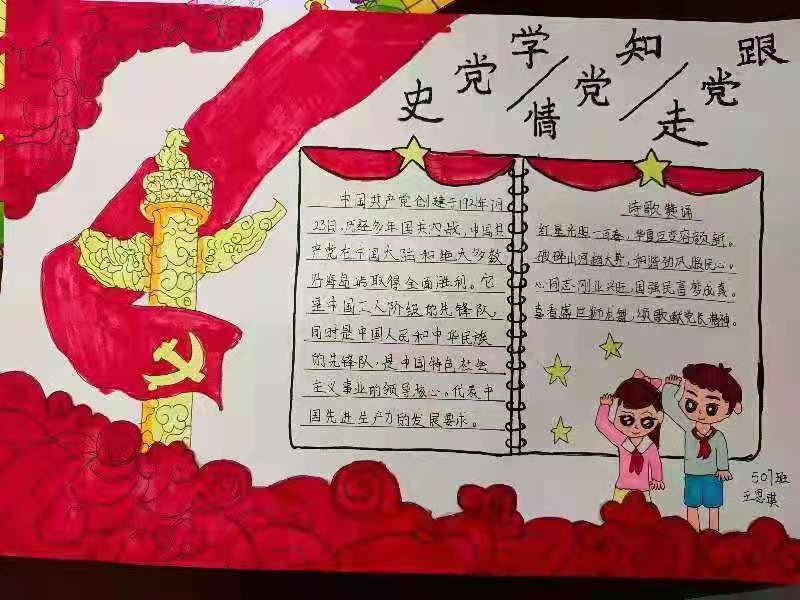 学党史
知党情
跟党走
中国共产党创建于1921年7月
23日,历经多年国共内战,中国共
产党在中国大陆和绝大多数
沿海岛屿取得全面胜利。它
是中国工人阶级的先锋队,
同时是中国人民和中华民族
的先锋队,是中国特色社会
主义事业的领导核心。代表中
国先进生产力的发展要求。
诗歌朗诵
红星光照一百春,华夏巨变容颜新。
破碎山河 民心。
心同志刚业兴旺,国强民富梦成真。
喜看盛世 龙舞,颂歌献党长精神。
507班
王思琪